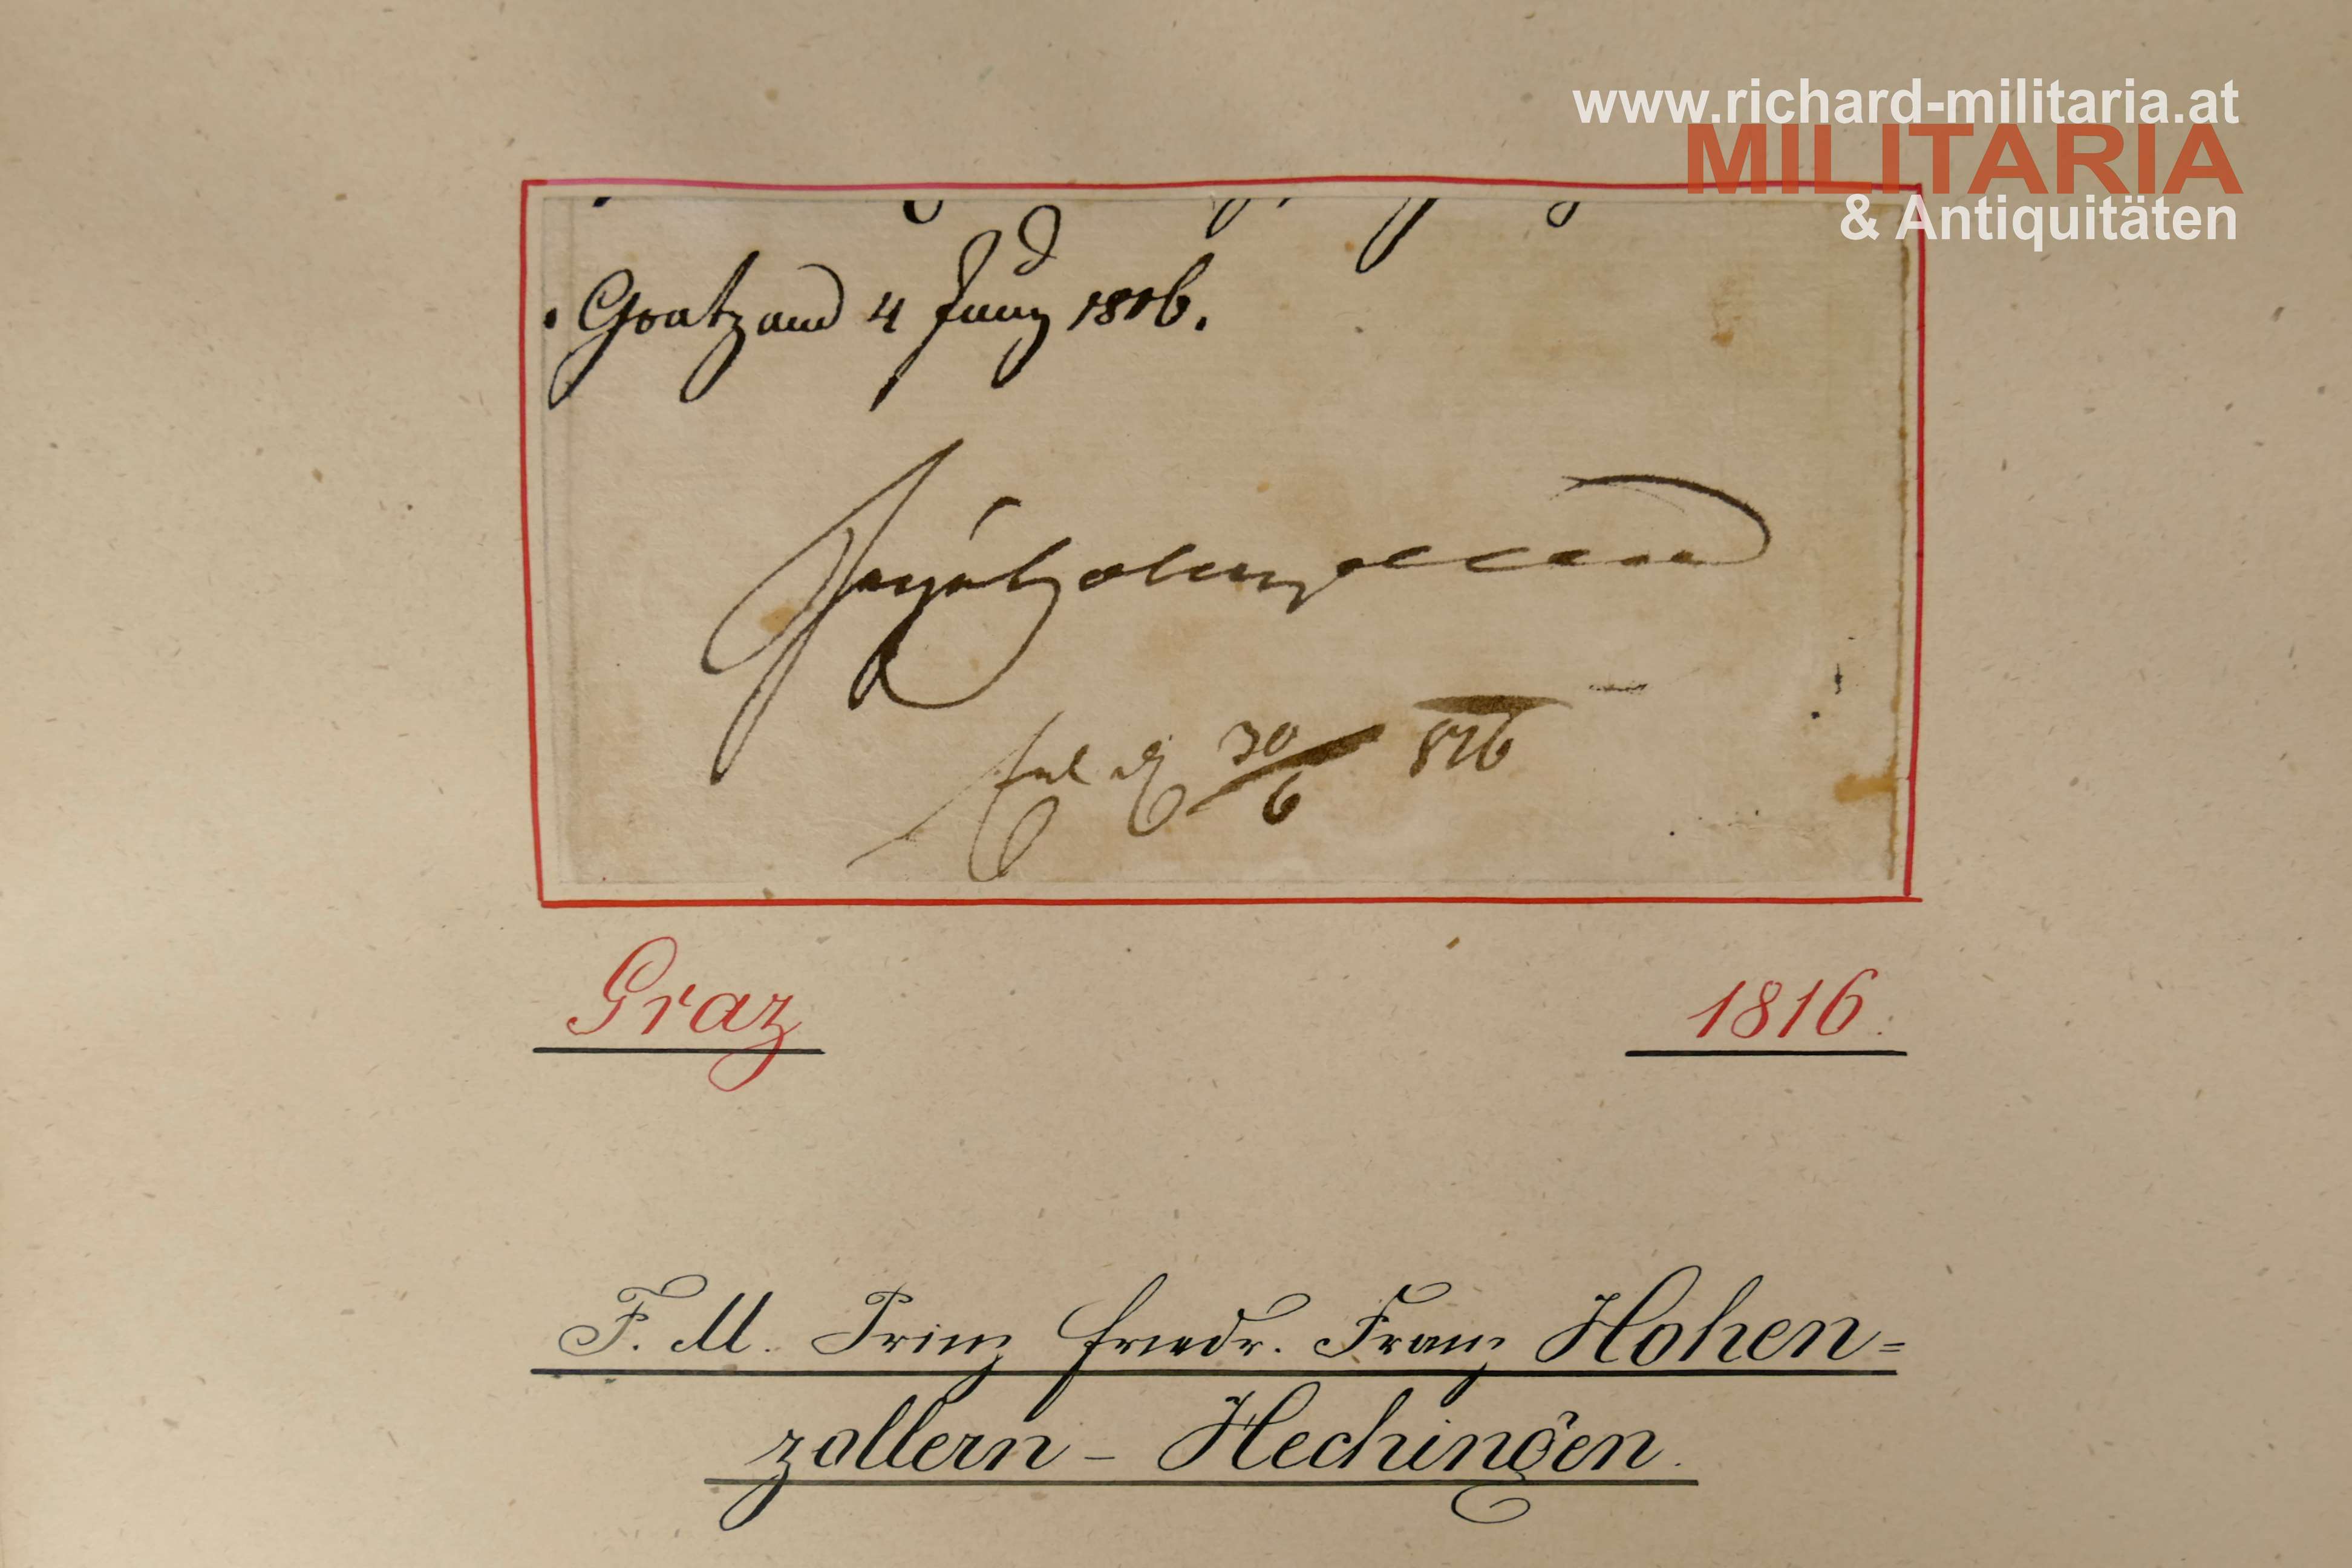 www.richard-militaria.at
MILITARIA
& Antiquitäten
Gratz am 4 Juny 1816.
30/6 816
Graz
1816.
F. M. Prinz Friedr. Franz Hohen=
zollern - Hechingen.